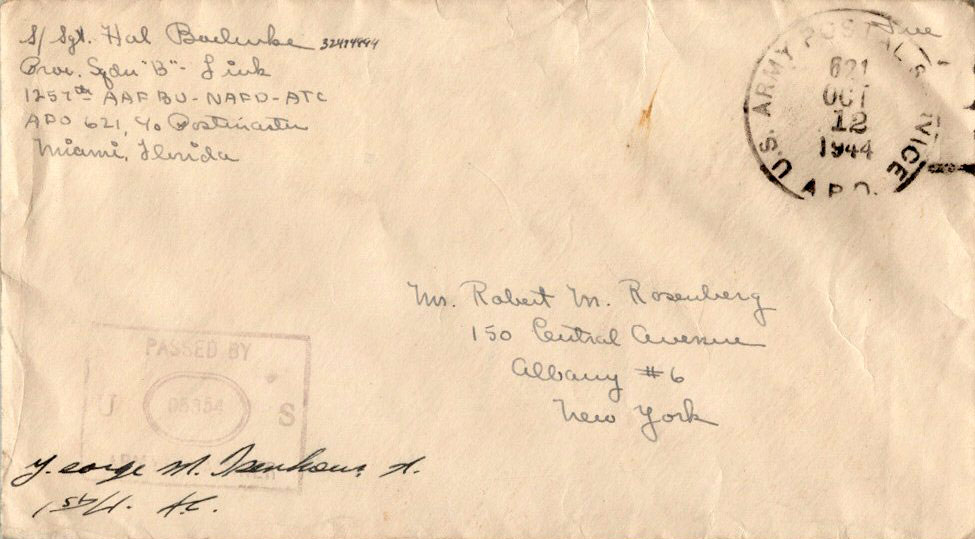 S/Sgt. Hal
Prov. Sqdn "B" - Link
1257th AAF BU - NAFD - ATC
APO 621, c/o Postmaster
Miami, Florida
Free
U.S. ARMY POSTAL SERVICE
621
OCT
12
1944
A.P.O.
Mr. Robert M. Rosenberg
150 Central Avenue
Albany #6
New York
PASSED BY
U 05354 S
ARMY
George M.
1st Lt. AC.